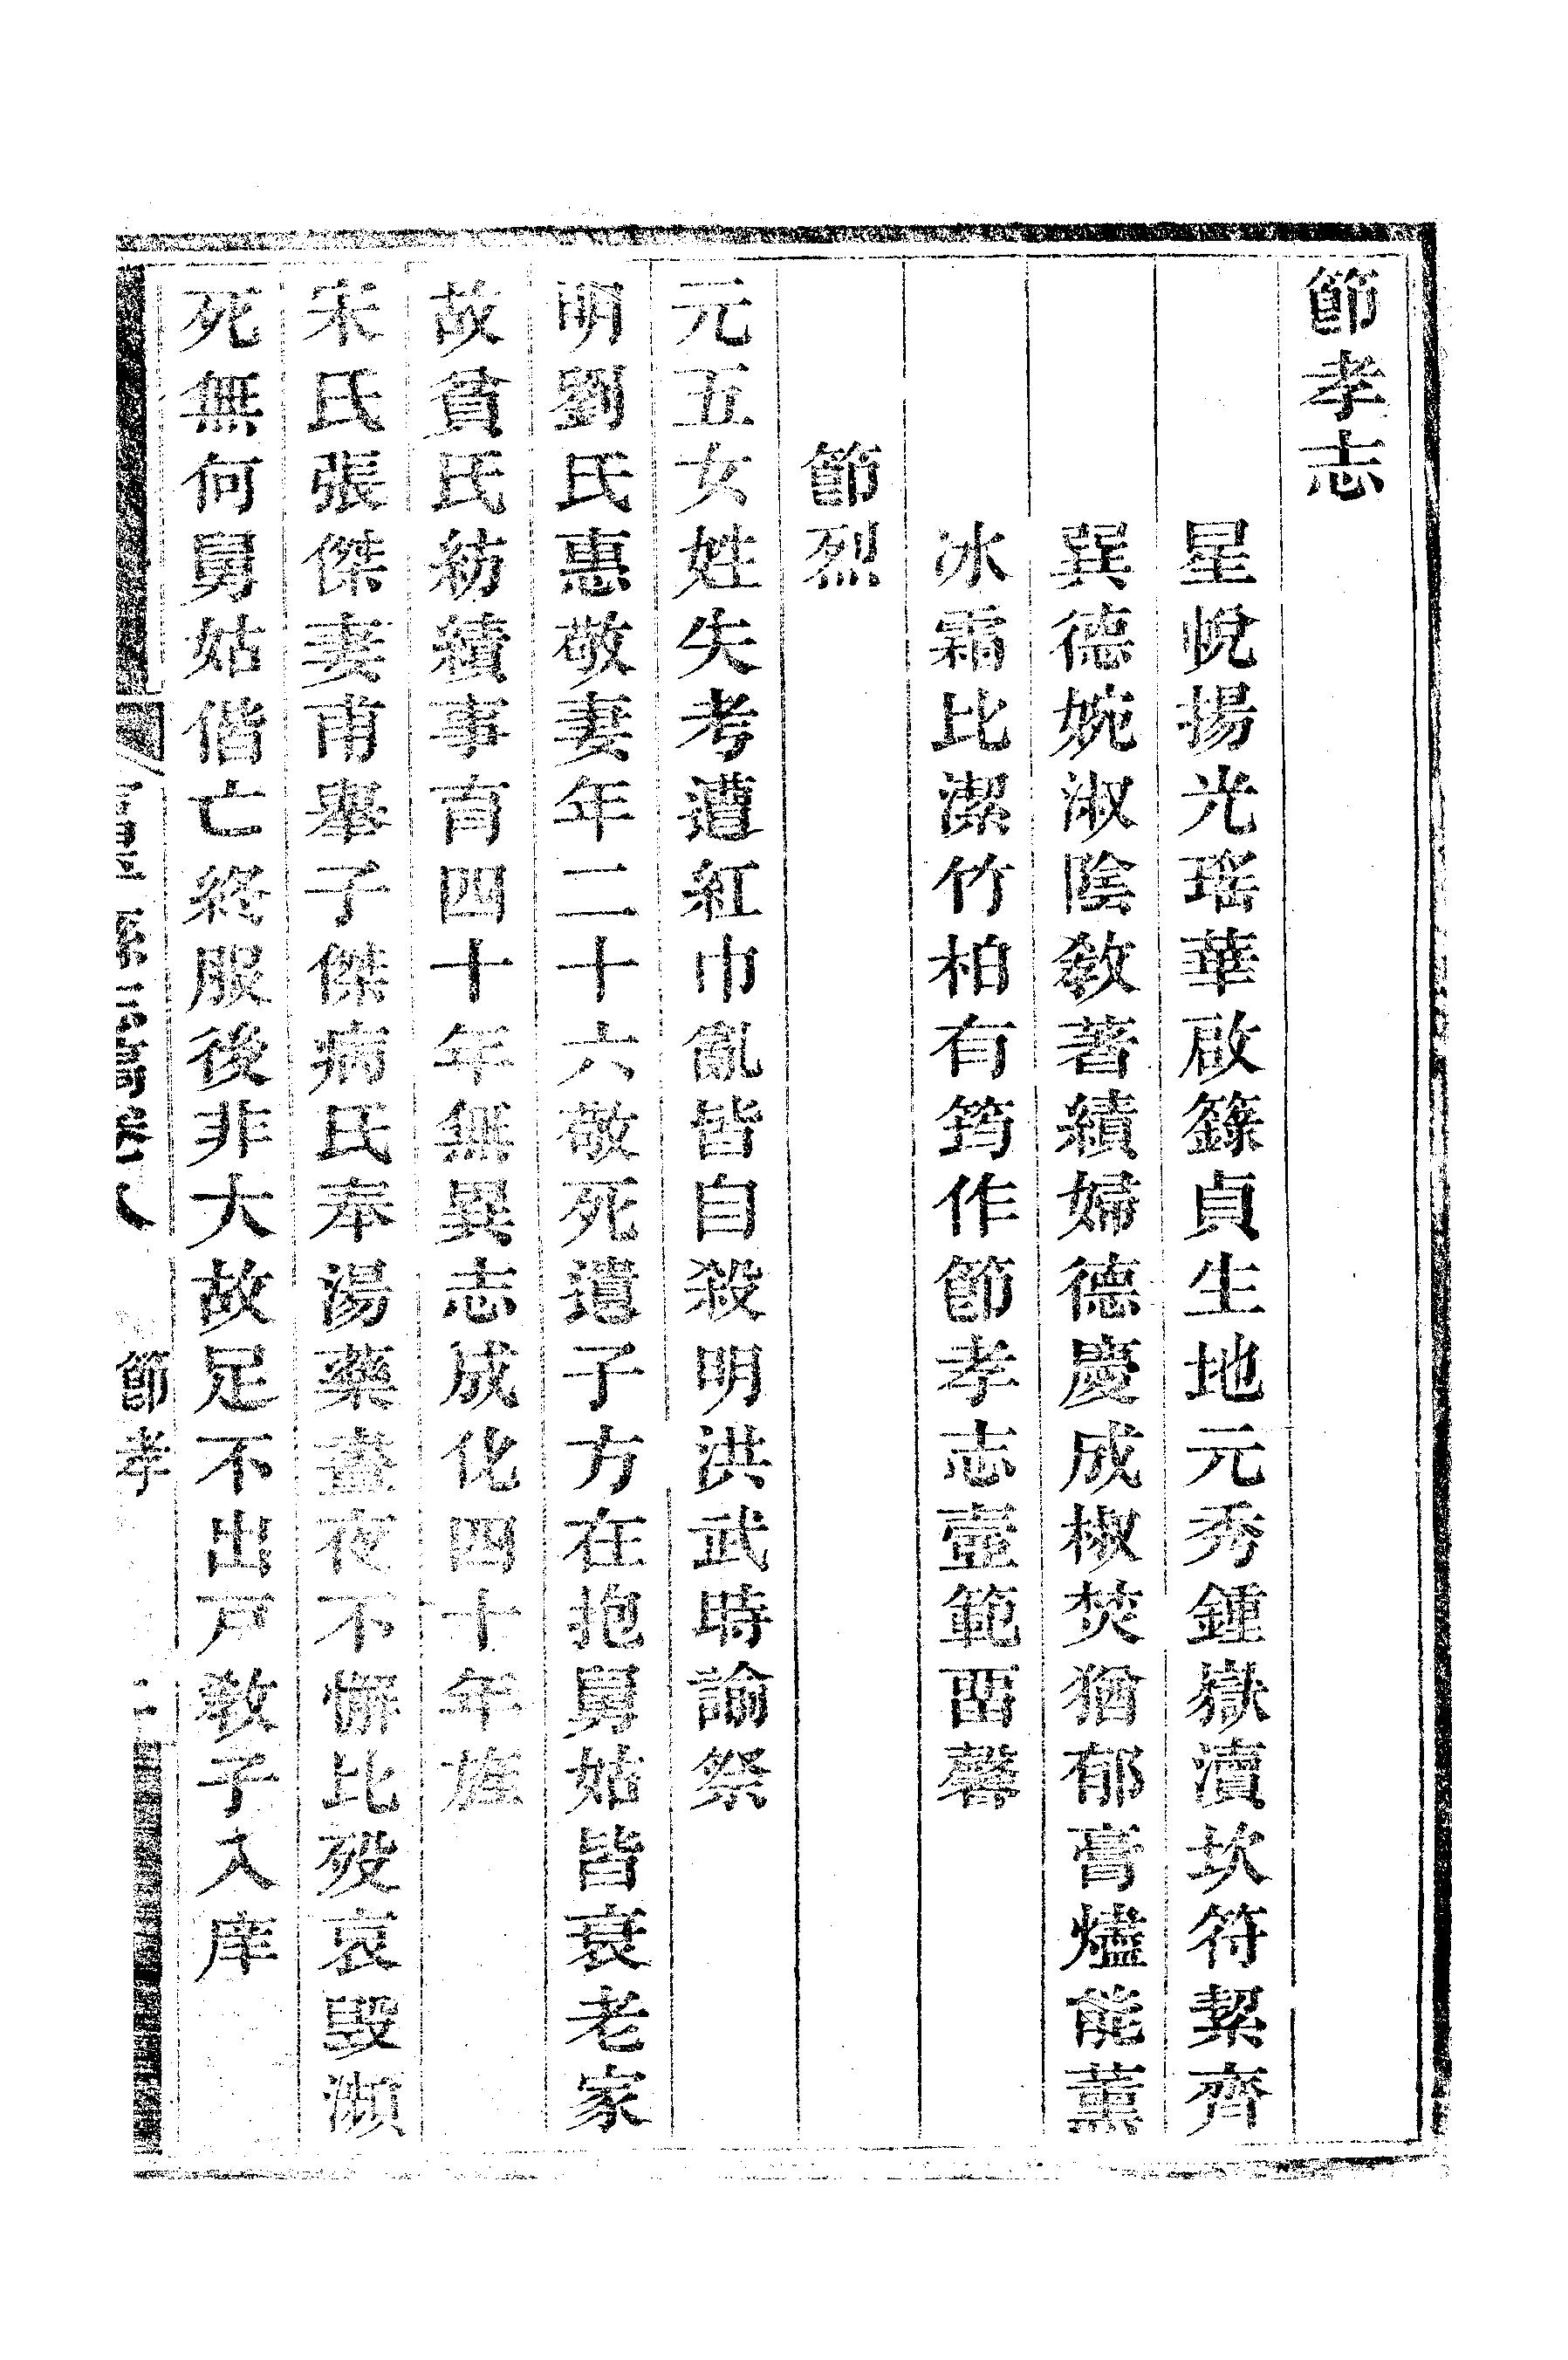 節孝志
星悅揚光瑤華啟籙貞生地元秀鍾嶽瀆坎符絜齊
巽德婉淑陰敎著績婦德慶成椒焚猶郁膏爐能薰
冰霜比潔竹柏有筠作節孝志壼範畱馨
節烈
元五女姓失考遭紅巾亂皆自殺明洪武時諭祭
明劉氏惠敬妻年二十六敬死遺子方在抱舅姑皆衰老家
故貧氏紡績事育四十年無異志成化四十年旌
宋氏張傑妻甫舉子傑病氏奉湯藥晝夜不懈比歿哀毀瀕
死無何舅姑偕亡終服後非大故足不出戸敎子入庠
縣志 卷八 節孝